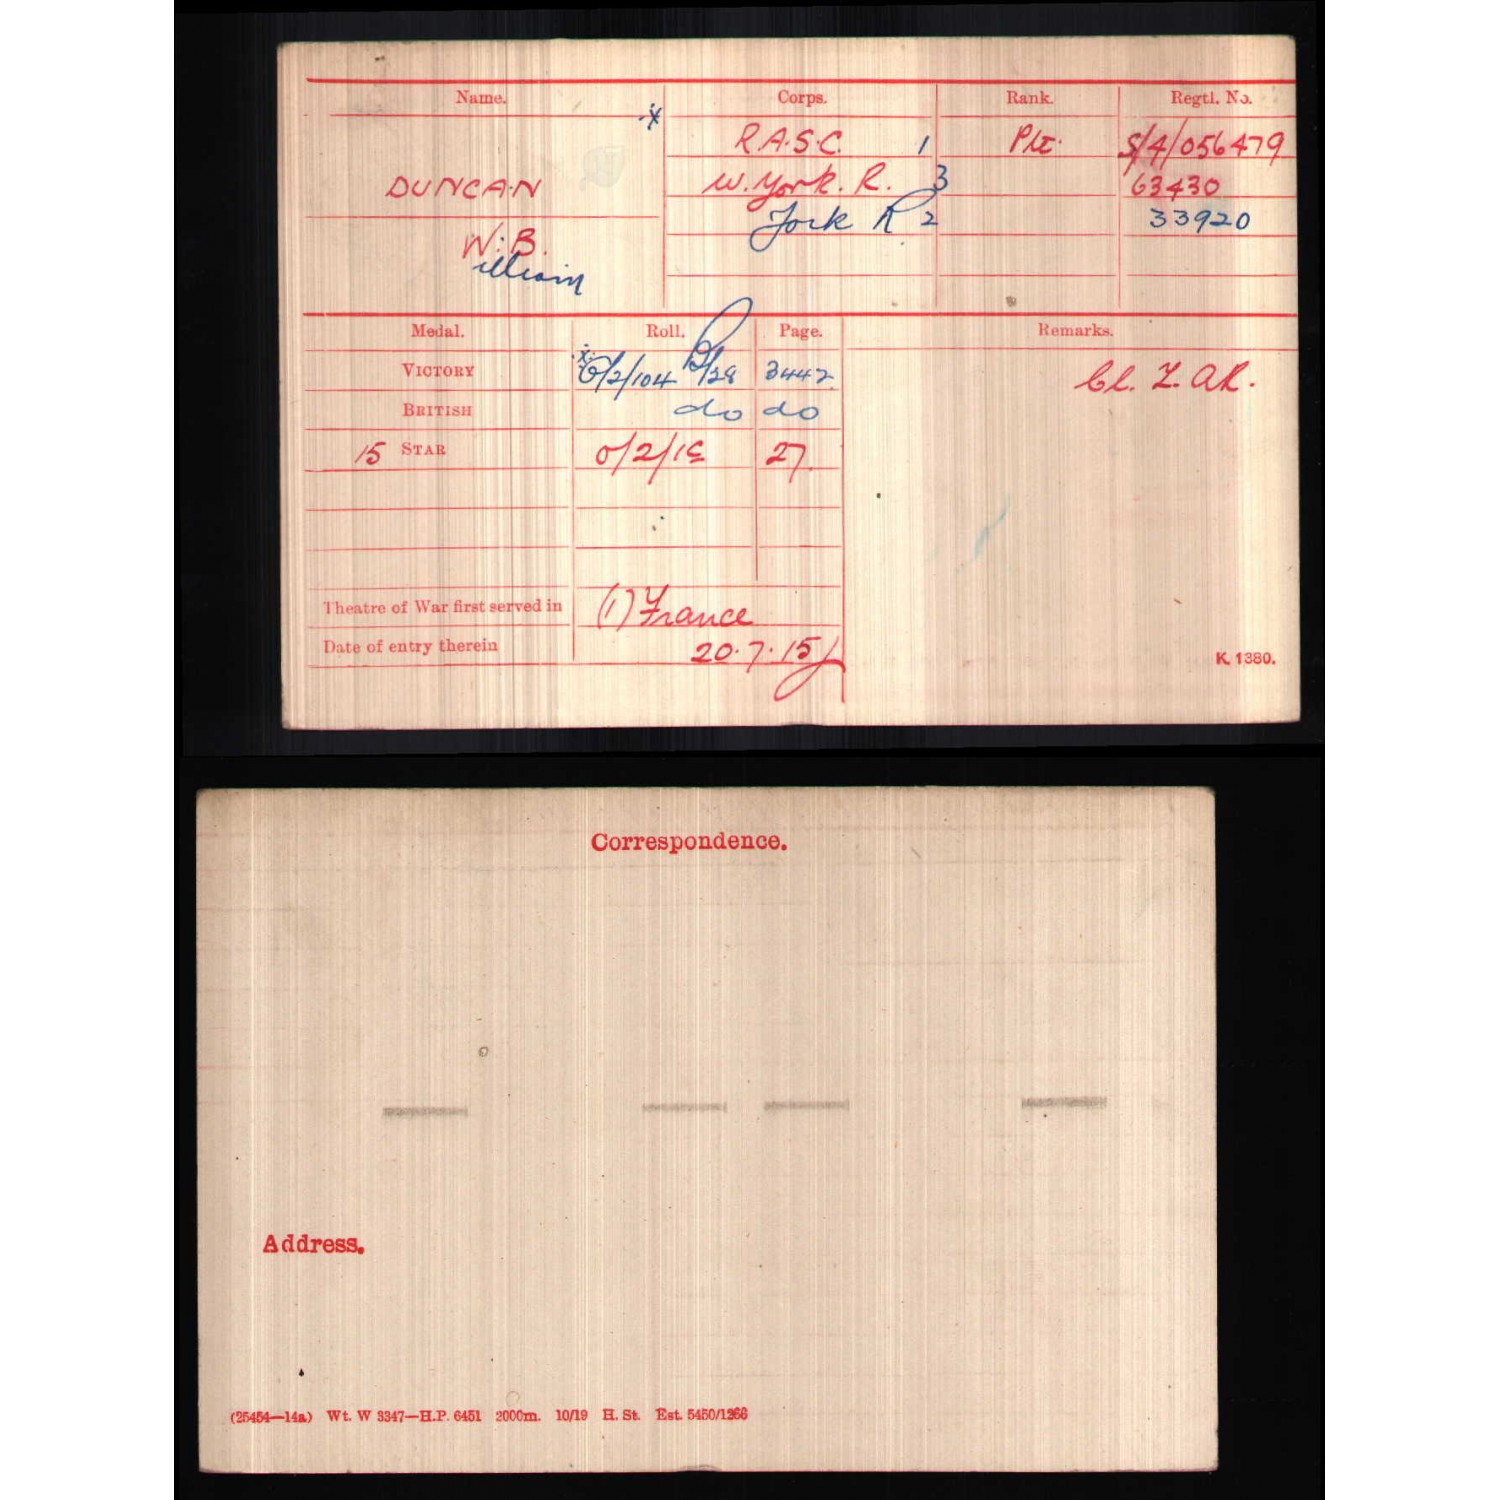 Name. Corps. Rank. Regtl. No.
R.A.S.C. 1 Pte. S/4/056479
DUNCAN W. York. R. 3 63430
York R 2 33920
W. B.
illiam
Medal. Roll. Page. Remarks.
VICTORY 3447 Cl. Z. AR.
BRITISH do do
15 STAR 0/2/15 27.
Theatre of War first served in (1) France
Date of entry therein 20.7.15
K. 1380.
Correspondence.
Address.
(25454—14a) Wt. W 3347—H.P. 6451 2000m. 10/19 H. St. Est. 5450/1266